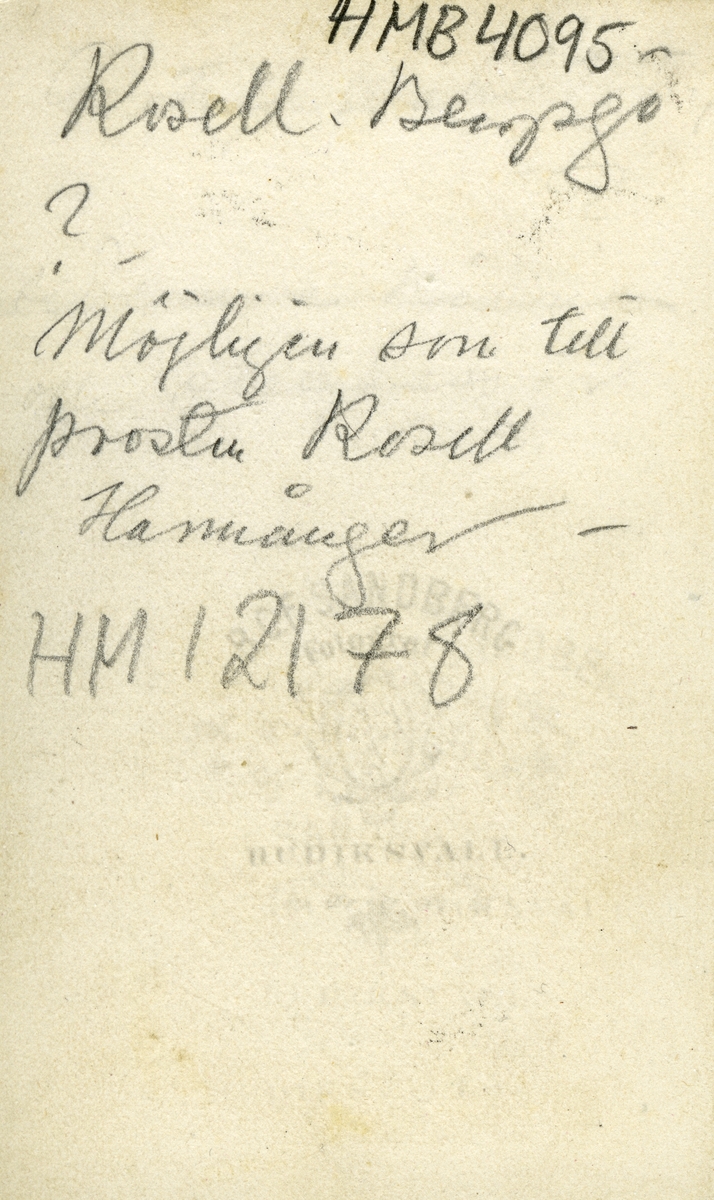 HMB4095-
Rosell. Bergsjö
?
Möjligen son till
prosten Rosell
Harmånger -
HM 12178
SANDBERG
Fotograf
HUDIKSVALL.